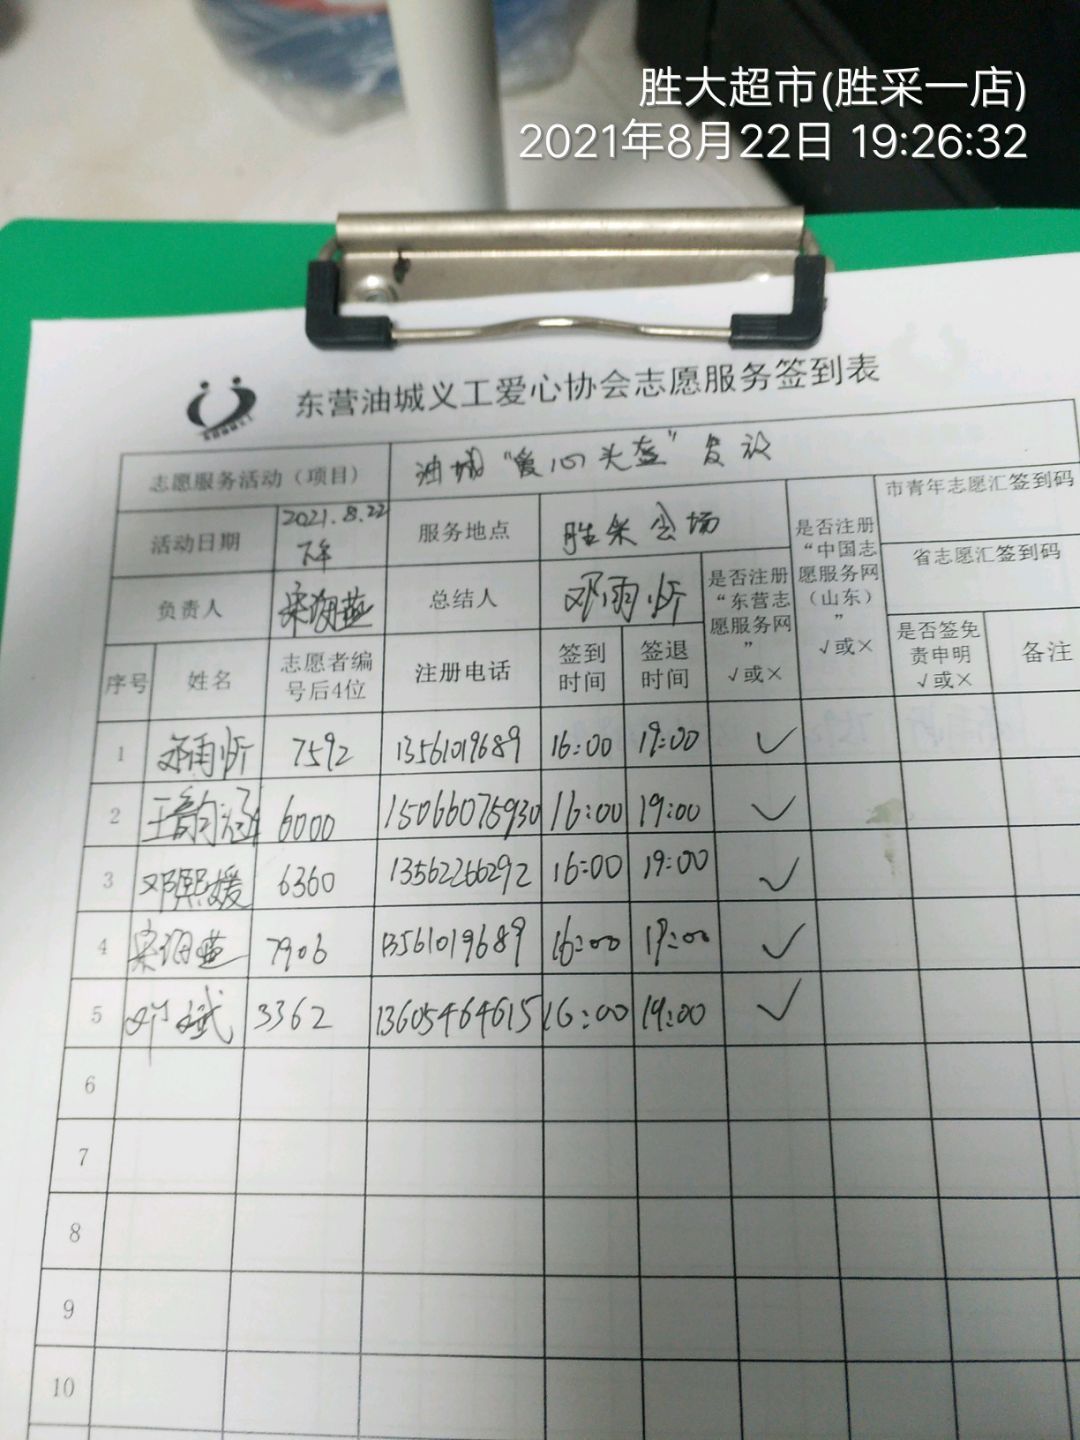 胜大超市(胜采一店)
2021年8月22日 19:26:32
东营油城义工爱心协会志愿服务签到表
志愿服务活动（项目） 油城“爱心头盔”发放
活动日期 2021.8.22 下午 服务地点 胜采会场 是否注册“中国志愿服务网（山东）” √或× 市青年志愿汇签到码
省志愿汇签到码
负责人 宋海燕 总结人 邓雨忻 是否注册“东营志愿服务网” √或×
序号 姓名 志愿者编号后4位 注册电话 签到时间 签退时间 是否签免责申明 √或× 备注
1 邓雨忻 7592 13561019689 16:00 19:00 ✓
2 王韵涵 6000 15066075930 16:00 19:00 ✓
3 邓熙媛 6360 13562266292 16:00 19:00 ✓
4 宋海燕 7906 13561019689 16:00 19:00 ✓
5 邓斌 3362 13605464615 16:00 19:00 ✓
6
7
8
9
10